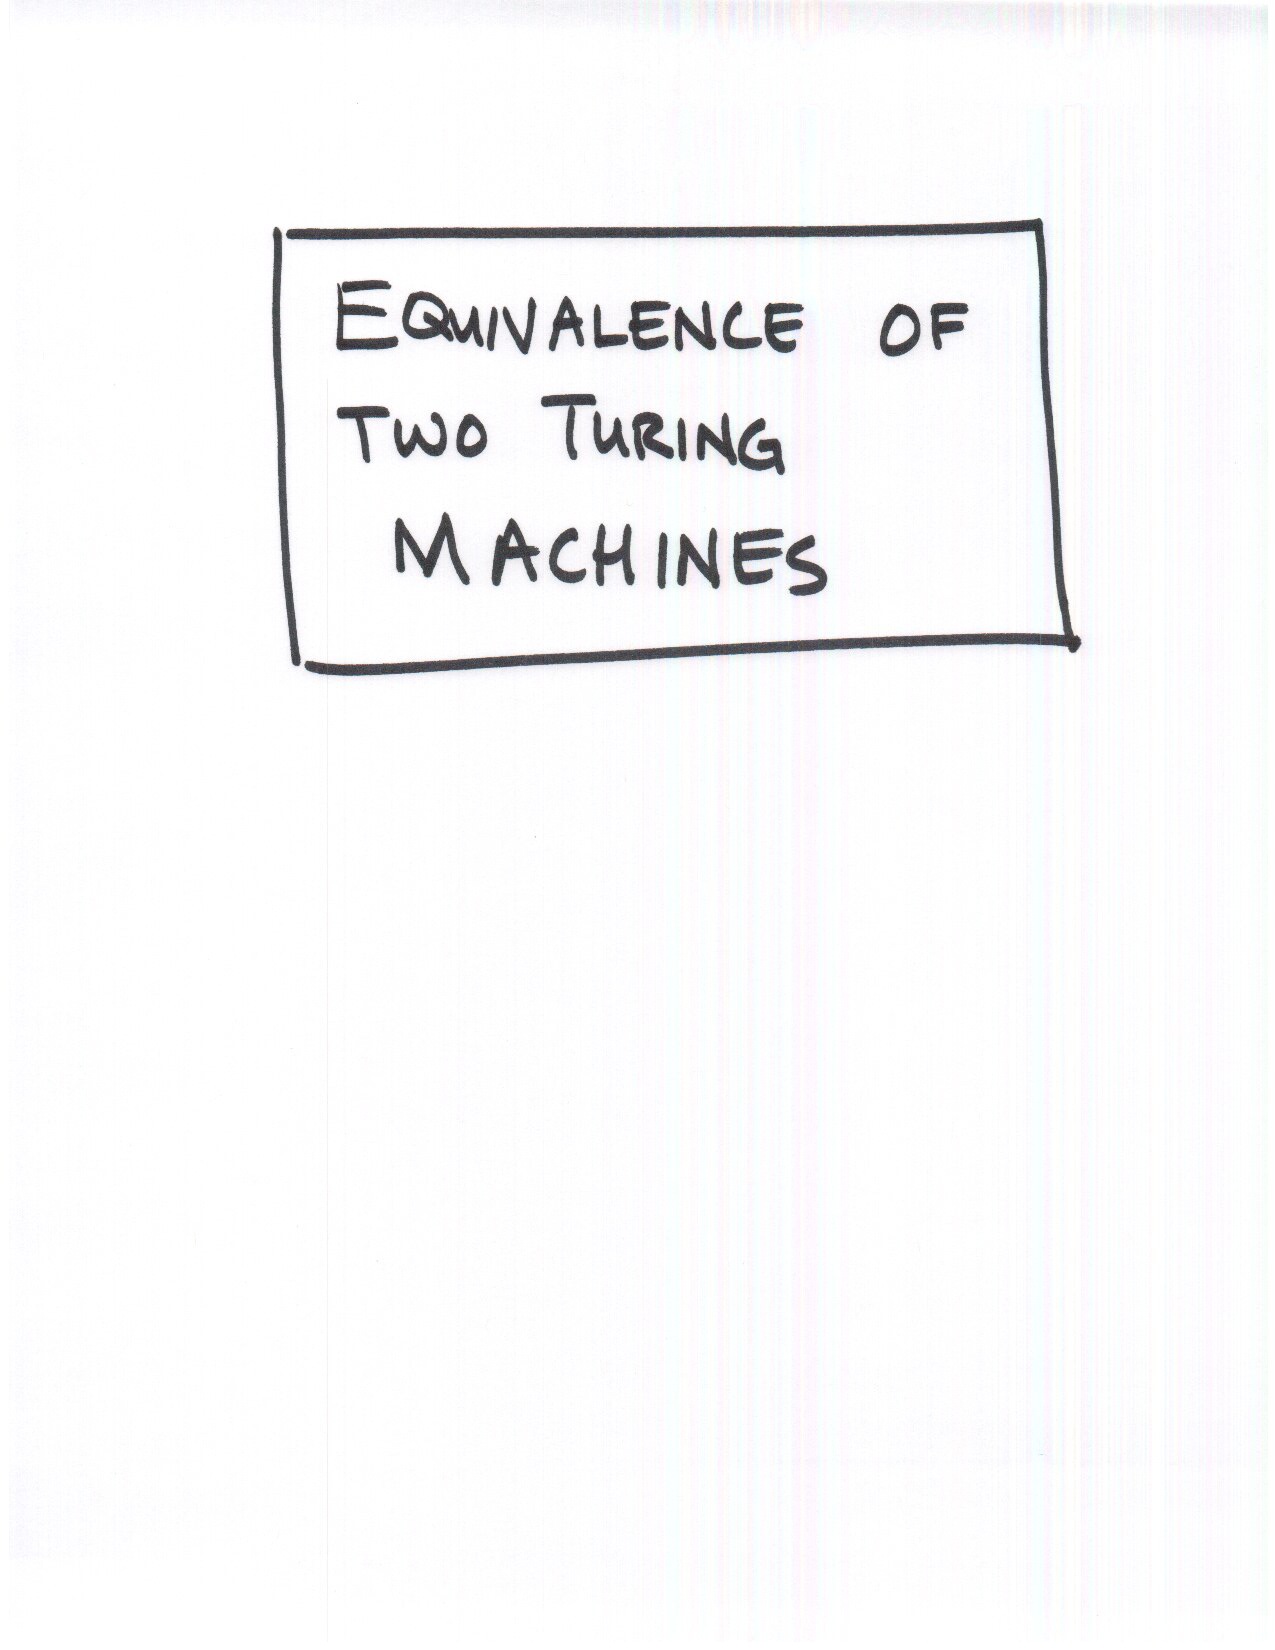 EQUIVALENCE OF
TWO TURING
MACHINES